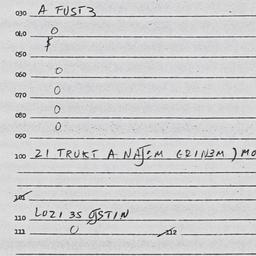 030 A FUST3
040 0
$
050
060 0
070 0
080 0
0
090
100 21 TRUKT A NAJEM (RIN3M) MO
101
110 LOZI 3S OJSTIN
111 0 112